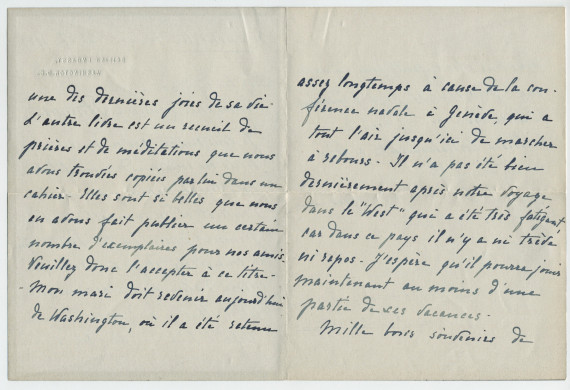 BRITISH EMBASSY,
WASHINGTON, D.C.
une des dernières joies de sa vie.
L'autre livre est un recueil de
prières et de méditations que nous
avons trouvées copiées par lui dans un
cahier. Elles sont si belles que nous
en avons fait publier un certain
nombre d'exemplaires pour nos amis.
Veuillez donc l'accepter à ce titre.
- Mon mari doit revenir aujourd'hui
de Washington, où il a été retenu
assez longtemps à cause de la con-
férence navale à Genève, qui a
tout l'air jusqu'ici de marcher
à rebours. Il n'a pas été bien
dernièrement après notre voyage
dans le "West" qui a été très fatigant,
car dans ce pays il n'y a ni trève
ni repos. J'espère qu'il pourra jouir
maintenant au moins d'une
partie de ses vacances.
Mille bons souvenirs de